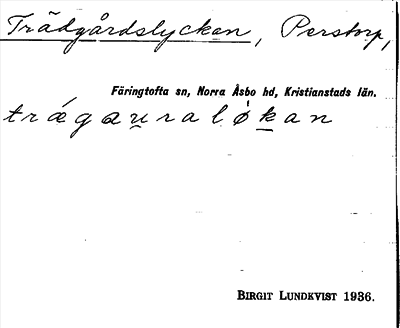 Trädgårdslyckan, Perstorp,
Färingtofta sn, Norra Åsbo hd, Kristianstads län.
trǽgau̯ralȯ́k̲an
BIRGIT LUNDKVIST 1936.